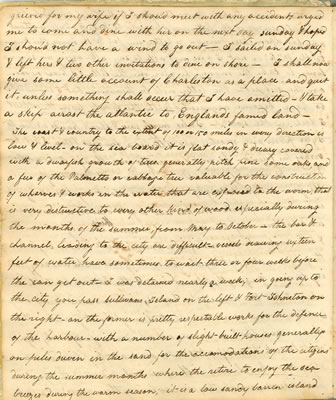 grieve for my wife if I should meet with any accident urges
me to come and dine with her on the next day sunday & hoped
I should not have a wind to go out — I sailed on sunday
& left hers & two other invitations to dine on shore — I shall now
give some little account of Charleston as a place and quit
it, unless something shall occur that I have omitted — & take
a skip across the atlantic to Englands famed land —
The coast & country to the extent of 100 or 150 miles in every direction is
low & level — on the sea board it is flat sandy & dreary covered
with a dwarfish growth of tree generally pitch pine some oaks and
a few of the Palmetto or cabbage tree valuable for the construction
of wharves & works in the water that are exposed to the worm, that
is very distructive to every other kind of wood especially during
the months of the summer, from May to October — the bar &
channel, leading to the city are difficult — vessels drawing sixteen
feet of water have sometimes to wait three or four weeks before
the can get out — I was detained nearly a week, in going up to
the city you pass Sullivans Island on the left & Fort Johnston on
the right — on the former is pretty respectable works for the defence
of the harbour — with a number of slight built houses generally
on piles driven in the sand for the accomodations of the citizens
during the summer months where the retire to enjoy the sea
breezes during the warm season, it is a low sandy barren island